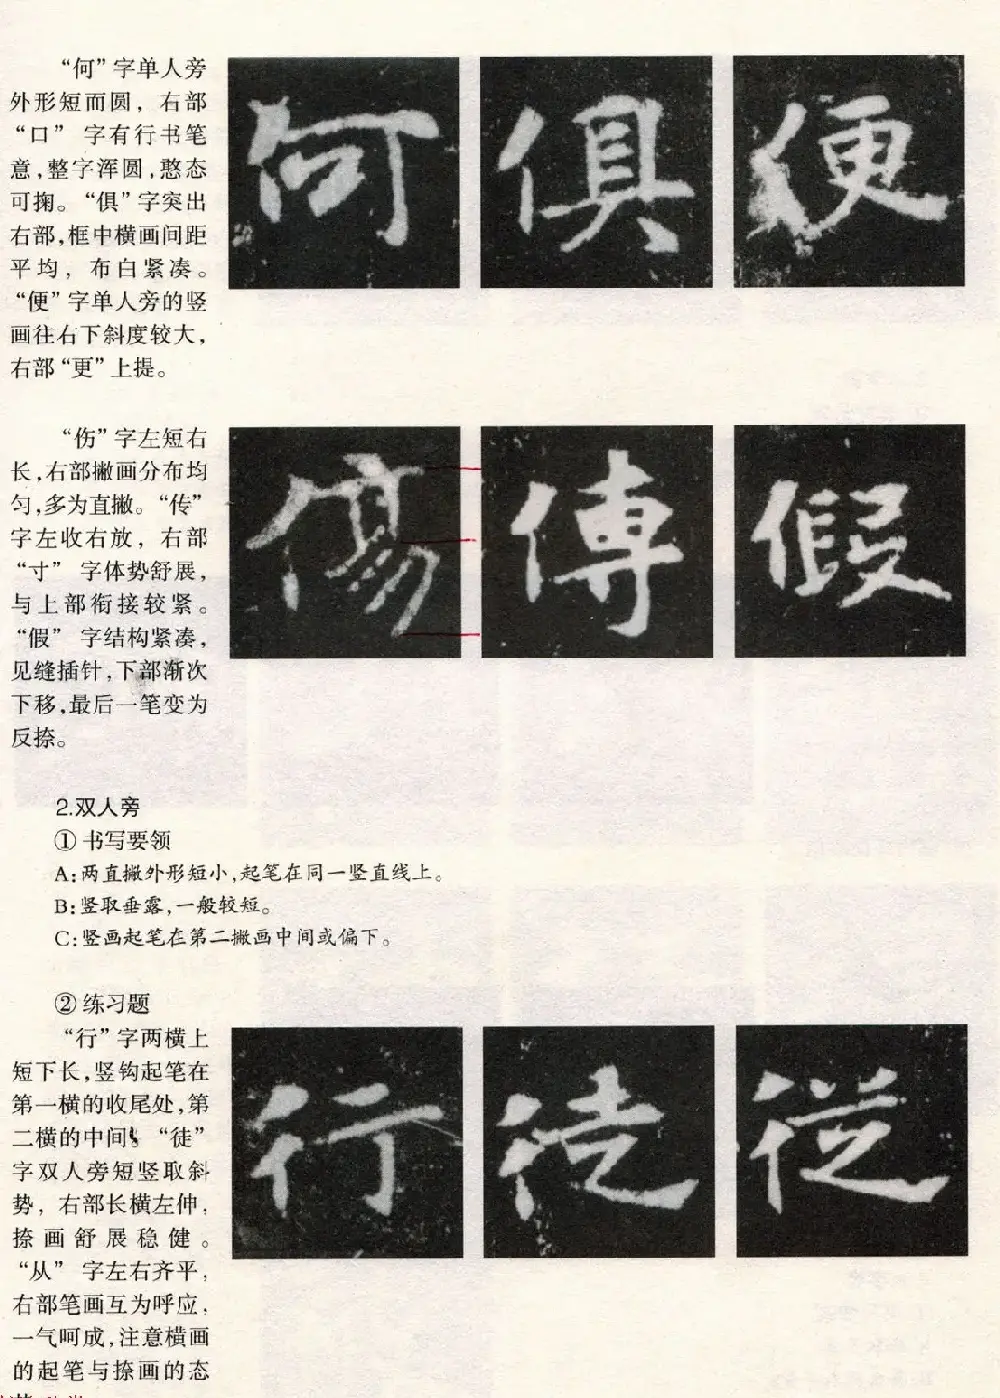 “何”字单人旁
外形短而圆，右部
“口” 字有行书笔
意,整字浑圆,憨态
可掬。“俱”字突出
右部,框中横画间距
平均，布白紧凑。
“便”字单人旁的竖
画往右下斜度较大,
右部“更”上提。
何 俱 便
“伤”字左短右
长,右部撇画分布均
匀,多为直撇。“传”
字左收右放，右部
“寸” 字体势舒展,
与上部衔接较紧。
“假” 字结构紧凑,
见缝插针,下部渐次
下移,最后一笔变为
反捺。
傷 傳 假
2.双人旁
① 书写要领
A:两直撇外形短小,起笔在同一竖直线上。
B:竖取垂露,一般较短。
C:竖画起笔在第二撇画中间或偏下。
② 练习题
“行”字两横上
短下长,竖钩起笔在
第一横的收尾处,第
二横的中间。“徒”
字双人旁短竖取斜
势，右部长横左伸,
捺画舒展稳健。
“从” 字左右齐平,
右部笔画互为呼应,
一气呵成,注意横画
的起笔与捺画的态
行 徒 從